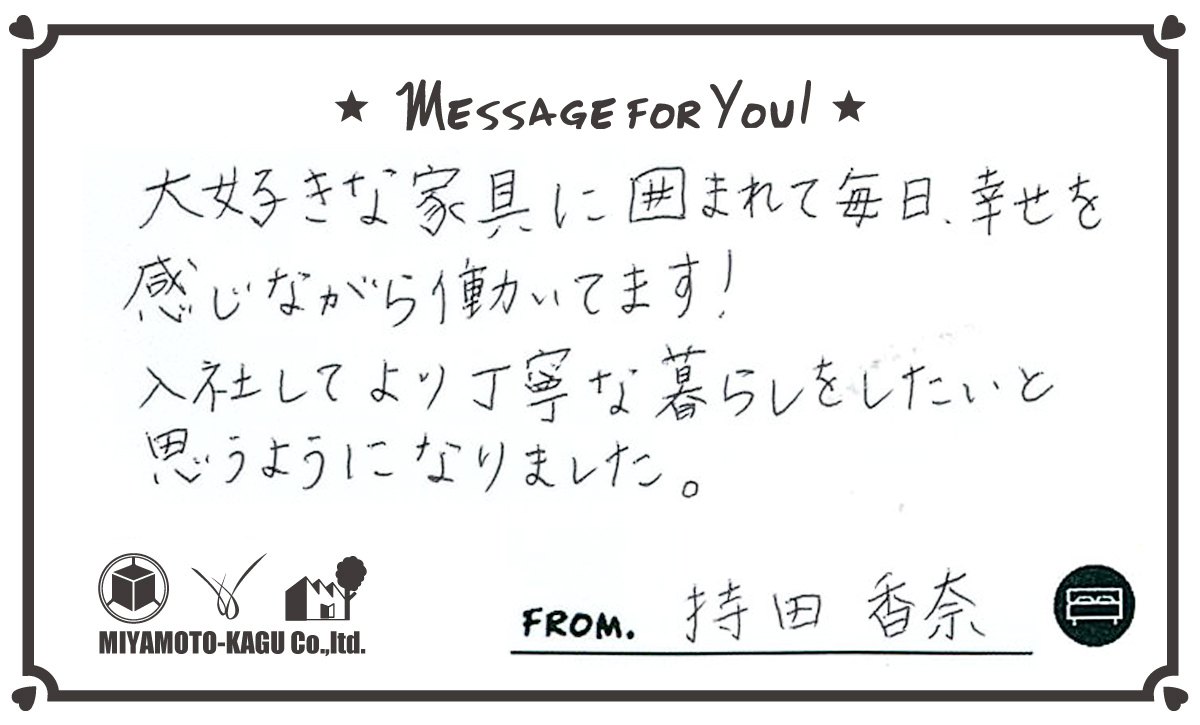 ★ MESSAGE FOR YOU! ★
大好きな家具に囲まれて毎日、幸せを
感じながら働いてます!
入社してより丁寧な暮らしをしたいと
思うようになりました。
MIYAMOTO-KAGU Co.,ltd.
FROM. 持田 香奈